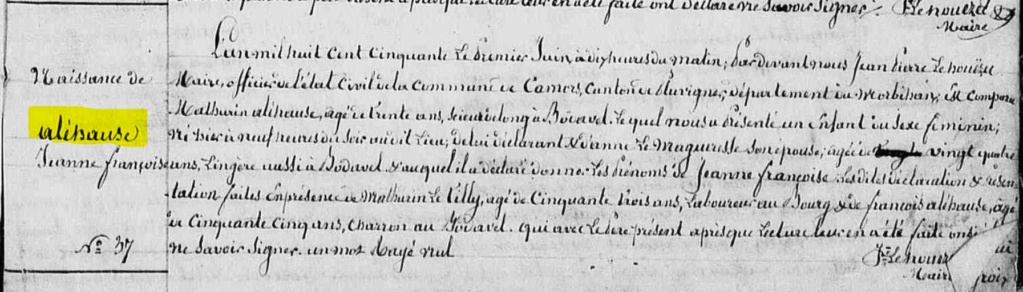 faite ont déclaré ne Savoir Signer. Le houëzec
Maire
L'an mil huit Cent Cinquante Le premier Juin, à dix heures du matin; Par devant nous Jean Pierre Le houëzec
Naissance de
Maire, officier de l'état Civil de la Commune de Camors, Canton de Pluvigner, département du Morbihan; Est Comparu
aléhause
Mathurin aléhause, agé de trente ans, Scieur de long à Bodavel. Le quel nous a présenté un Enfant du Sexe féminin;
né hier à neuf heures du Soir au dit Lieu; de lui déclarant & d'anne Le Magueresse Son épouse; agée de vingt quatre
Jeanne françoise
ans, Lingère aussi à Bodavel & auquel il a déclaré donner Les prénoms de Jeanne françoise. Les dites déclaration & présen-
tation faites En présence de Mathurin Le tilly, agé de Cinquante trois ans, Laboureur au Bourg & de françois aléhause, agé
de Cinquante Cinq ans, Charron au Bodavel. qui avec Le père présent après que Lecture leur en a été faite ont
No. 37
ne Savoir Signer. un mot Rayé nul
Maire